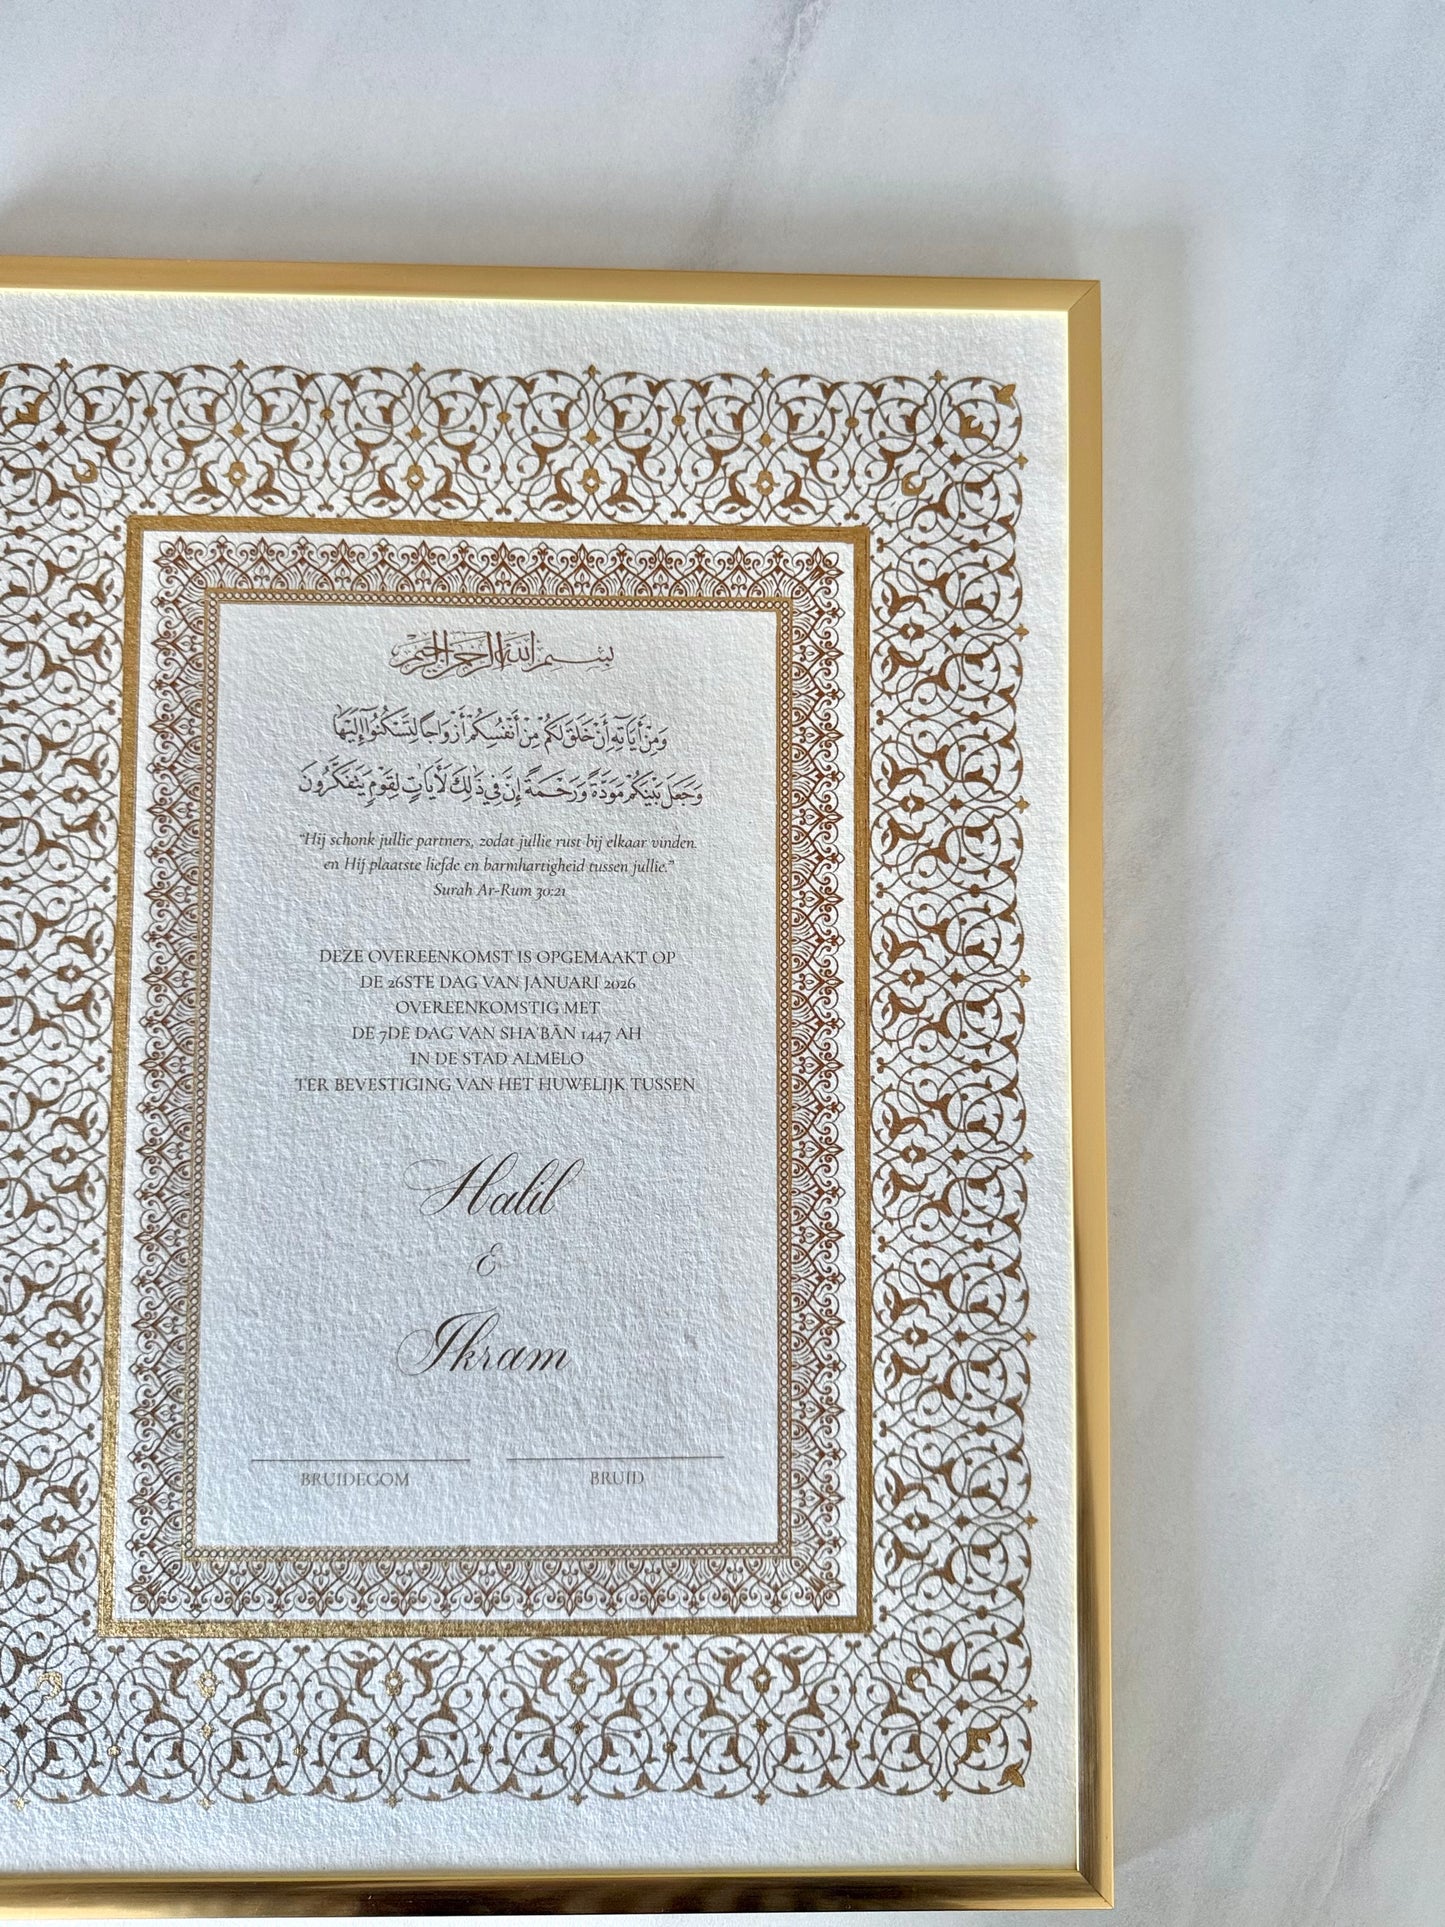 بسم الله الرحمن الرحيم
وَمِنْ أَيَاتِهِ أَنْ خَلَقَ لَكُمْ مِنْ أَنْفُسِكُمْ أَزْوَاجًا لِتَسْكُنُوا إِلَيْهَا
وَجَعَلَ بَيْنَكُمْ مَوَدَّةً وَرَحْمَةً إِنَّ فِي ذَٰلِكَ لَأَيَاتٍ لِقَوْمٍ يَتَفَكَّرُونَ
“Hij schonk jullie partners, zodat jullie rust bij elkaar vinden.
en Hij plaatste liefde en barmhartigheid tussen jullie.”
Surah Ar-Rum 30:21
DEZE OVEREENKOMST IS OPGEMAAKT OP
DE 26STE DAG VAN JANUARI 2026
OVEREENKOMSTIG MET
DE 7DE DAG VAN SHA'BĀN 1447 AH
IN DE STAD ALMELO
TER BEVESTIGING VAN HET HUWELIJK TUSSEN
Halil
&
Ikram
BRUIDEGOM BRUID